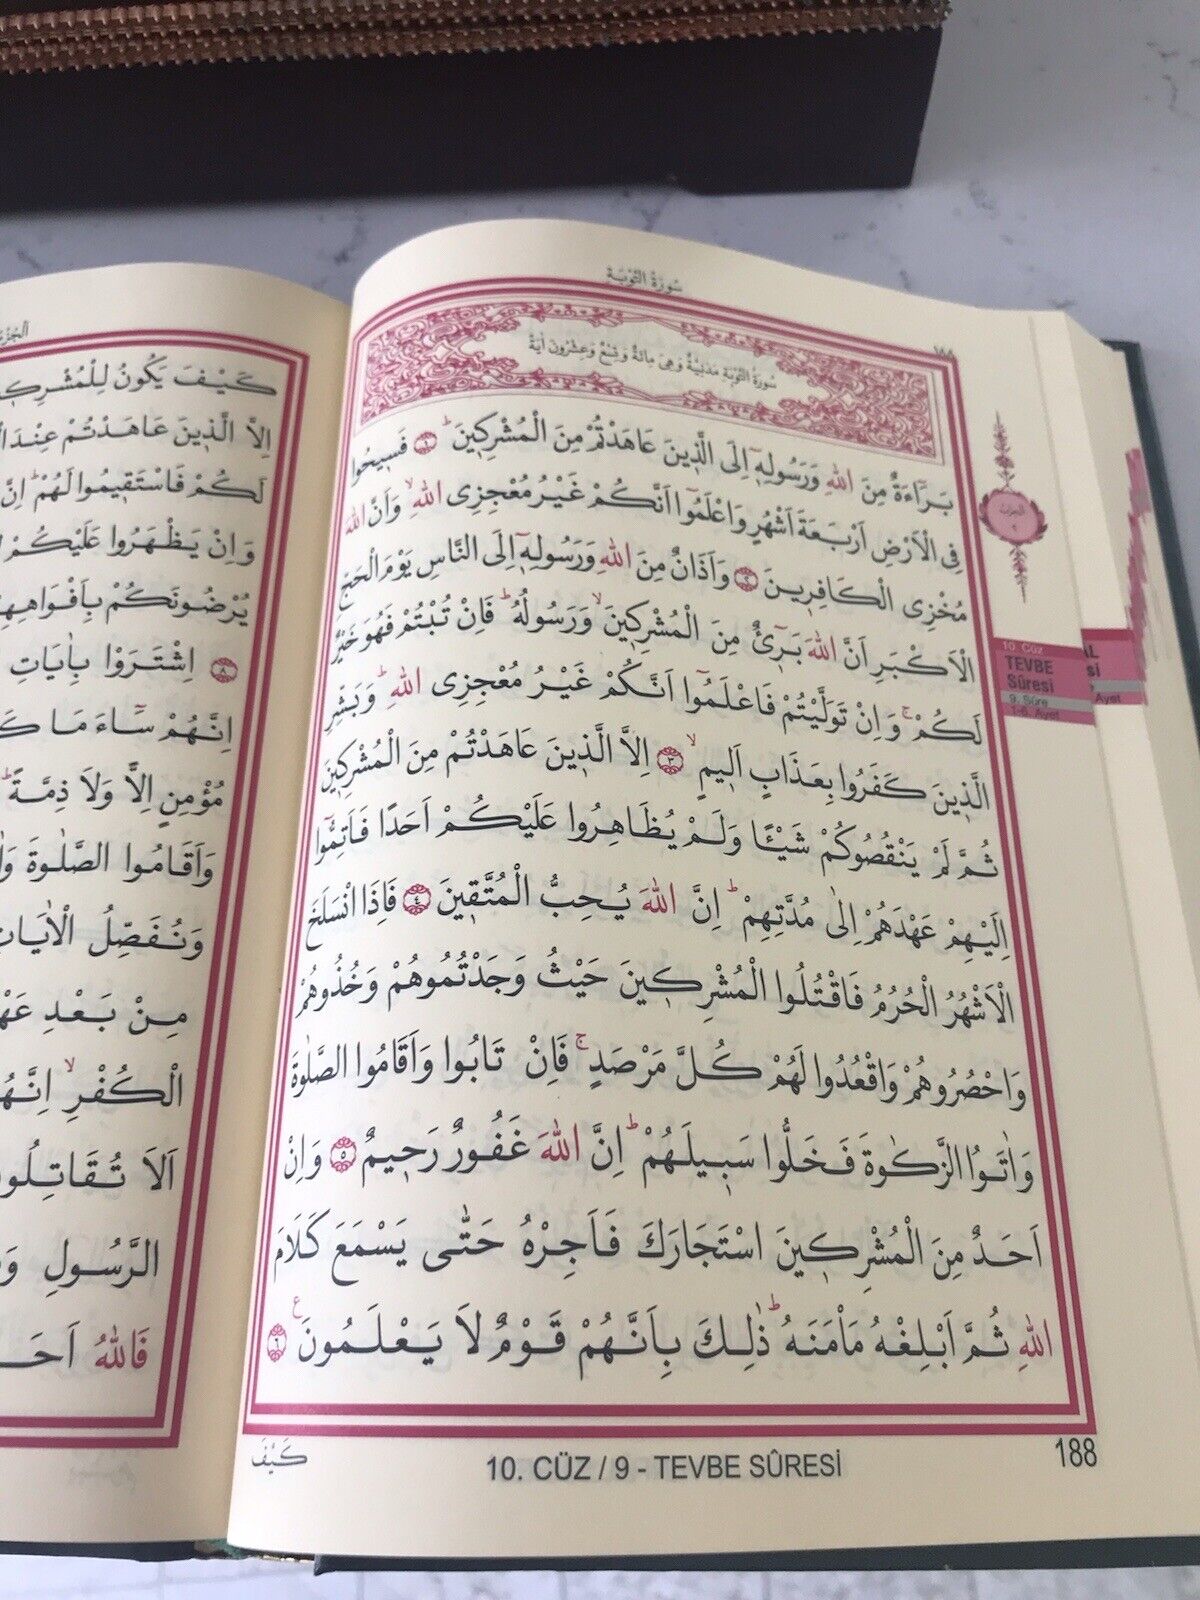 سُورَةُ التَّوْبَةِ
١٨٨
سُورَةُ التَّوْبَةِ مَدَنِيَّةٌ وَهِيَ مِائَةٌ وَتِسْعٌ وَعِشْرُونَ اٰيَةً
بَرَٓاءَةٌ مِنَ اللّٰهِ وَرَسُولِه۪ٓ اِلَى الَّذ۪ينَ عَاهَدْتُمْ مِنَ الْمُشْرِك۪ينَۜ ﴿١﴾ فَس۪يحُوا
فِي الْاَرْضِ اَرْبَعَةَ اَشْهُرٍ وَاعْلَمُٓوا اَنَّكُمْ غَيْرُ مُعْجِزِي اللّٰهِۙ وَاَنَّ اللّٰهَ
مُخْزِي الْكَافِر۪ينَ ﴿٢﴾ وَاَذَانٌ مِنَ اللّٰهِ وَرَسُولِه۪ٓ اِلَى النَّاسِ يَوْمَ الْحَجِّ
الْاَكْبَرِ اَنَّ اللّٰهَ بَر۪ٓيءٌ مِنَ الْمُشْرِك۪ينَۙ وَرَسُولُهُۜ فَاِنْ تُبْتُمْ فَهُوَ خَيْرٌ
لَكُمْۚ وَاِنْ تَوَلَّيْتُمْ فَاعْلَمُٓوا اَنَّكُمْ غَيْرُ مُعْجِزِي اللّٰهِۜ وَبَشِّرِ
الَّذ۪ينَ كَفَرُوا بِعَذَابٍ اَل۪يمٍۙ ﴿٣﴾ اِلَّا الَّذ۪ينَ عَاهَدْتُمْ مِنَ الْمُشْرِك۪ينَ
ثُمَّ لَمْ يَنْقُصُوكُمْ شَيْـًٔا وَلَمْ يُظَاهِرُوا عَلَيْكُمْ اَحَدًا فَاَتِمُّٓوا
اِلَيْهِمْ عَهْدَهُمْ اِلٰى مُدَّتِهِمْۜ اِنَّ اللّٰهَ يُحِبُّ الْمُتَّق۪ينَ ﴿٤﴾ فَاِذَا انْسَلَخَ
الْاَشْهُرُ الْحُرُمُ فَاقْتُلُوا الْمُشْرِك۪ينَ حَيْثُ وَجَدْتُمُوهُمْ وَخُذُوهُمْ
وَاحْصُرُوهُمْ وَاقْعُدُوا لَهُمْ كُلَّ مَرْصَدٍۚ فَاِنْ تَابُوا وَاَقَامُوا الصَّلٰوةَ
وَاٰتَوُا الزَّكٰوةَ فَخَلُّوا سَب۪يلَهُمْۜ اِنَّ اللّٰهَ غَفُورٌ رَح۪يمٌ ﴿٥﴾ وَاِنْ
اَحَدٌ مِنَ الْمُشْرِك۪ينَ اسْتَجَارَكَ فَاَجِرْهُ حَتّٰى يَسْمَعَ كَلَامَ
اللّٰهِ ثُمَّ اَبْلِغْهُ مَأْمَنَهُۜ ذٰلِكَ بِاَنَّهُمْ قَوْمٌ لَا يَعْلَمُونَ۟ ﴿٦﴾
كَيْفَ
10. CÜZ / 9 - TEVBE SÛRESİ
188
10. Cüz
TEVBE
Sûresi
9. Sûre
1-6. Ayet
AL
si
Ayet
كَيْفَ يَكُونُ لِلْمُشْرِك۪
اِلَّا الَّذ۪ينَ عَاهَدْتُمْ عِنْدَ
لَكُمْ فَاسْتَق۪يمُوا لَهُمْۜ اِنَّ
وَاِنْ يَظْهَرُوا عَلَيْكُمْ
يُرْضُونَكُمْ بِاَفْوَاهِهِ
﴿٨﴾ اِشْتَرَوْا بِاٰيَاتِ
اِنَّهُمْ سَٓاءَ مَا كَ
مُؤْمِنٍ اِلًّا وَلَا ذِمَّةًۜ
وَاَقَامُوا الصَّلٰوةَ
وَنُفَصِّلُ الْاٰيَاتِ
مِنْ بَعْدِ عَهْ
الْكُفْرِۙ اِنَّهُ
اَلَا تُقَاتِلُو
الرَّسُولِ وَ
فَاللّٰهُ اَحَ